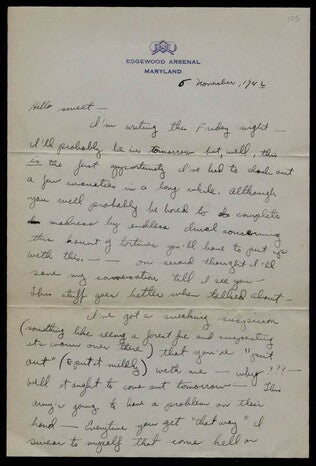 175
EDGEWOOD ARSENAL
MARYLAND
6 November, 1942
Hello sweet —
I'm writing this Friday night —
I'll probably be in tomorrow but, well, this
is the first opportunity I've had to dash out
a few insanities in a long while. Although
you will probably be bored to complete
madness by endless drivel concerning
this haunt of tortures you'll have to put up
with this — — on second thought I'll
save my conversation 'till I see you —
This stuff goes better when talked about —
I've got a sneaking suspicion
(something like seeing a forest fire and suspecting
its warm over there) that you're "put
out" (to put it mildly) with me — why !?? —
Well it ought to come out tomorrow — This
army's going to have a problem on their
hand — Everytime you get "that way" I
swear to myself that come hell or